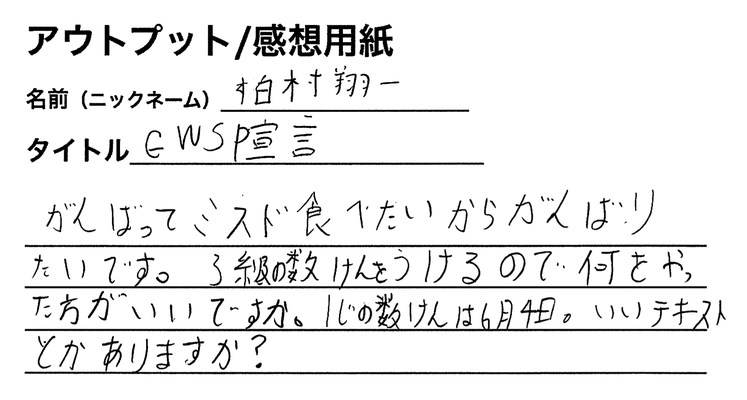 アウトプット/感想用紙
名前（ニックネーム） 柏村翔一
タイトル GWSP宣言
がんばってミスド食べたいからがんばり
たいです。3級の数けんをうけるので何をやっ
た方がいいですか。1じの数けんは6月4日。いいテキスト
とかありますか?